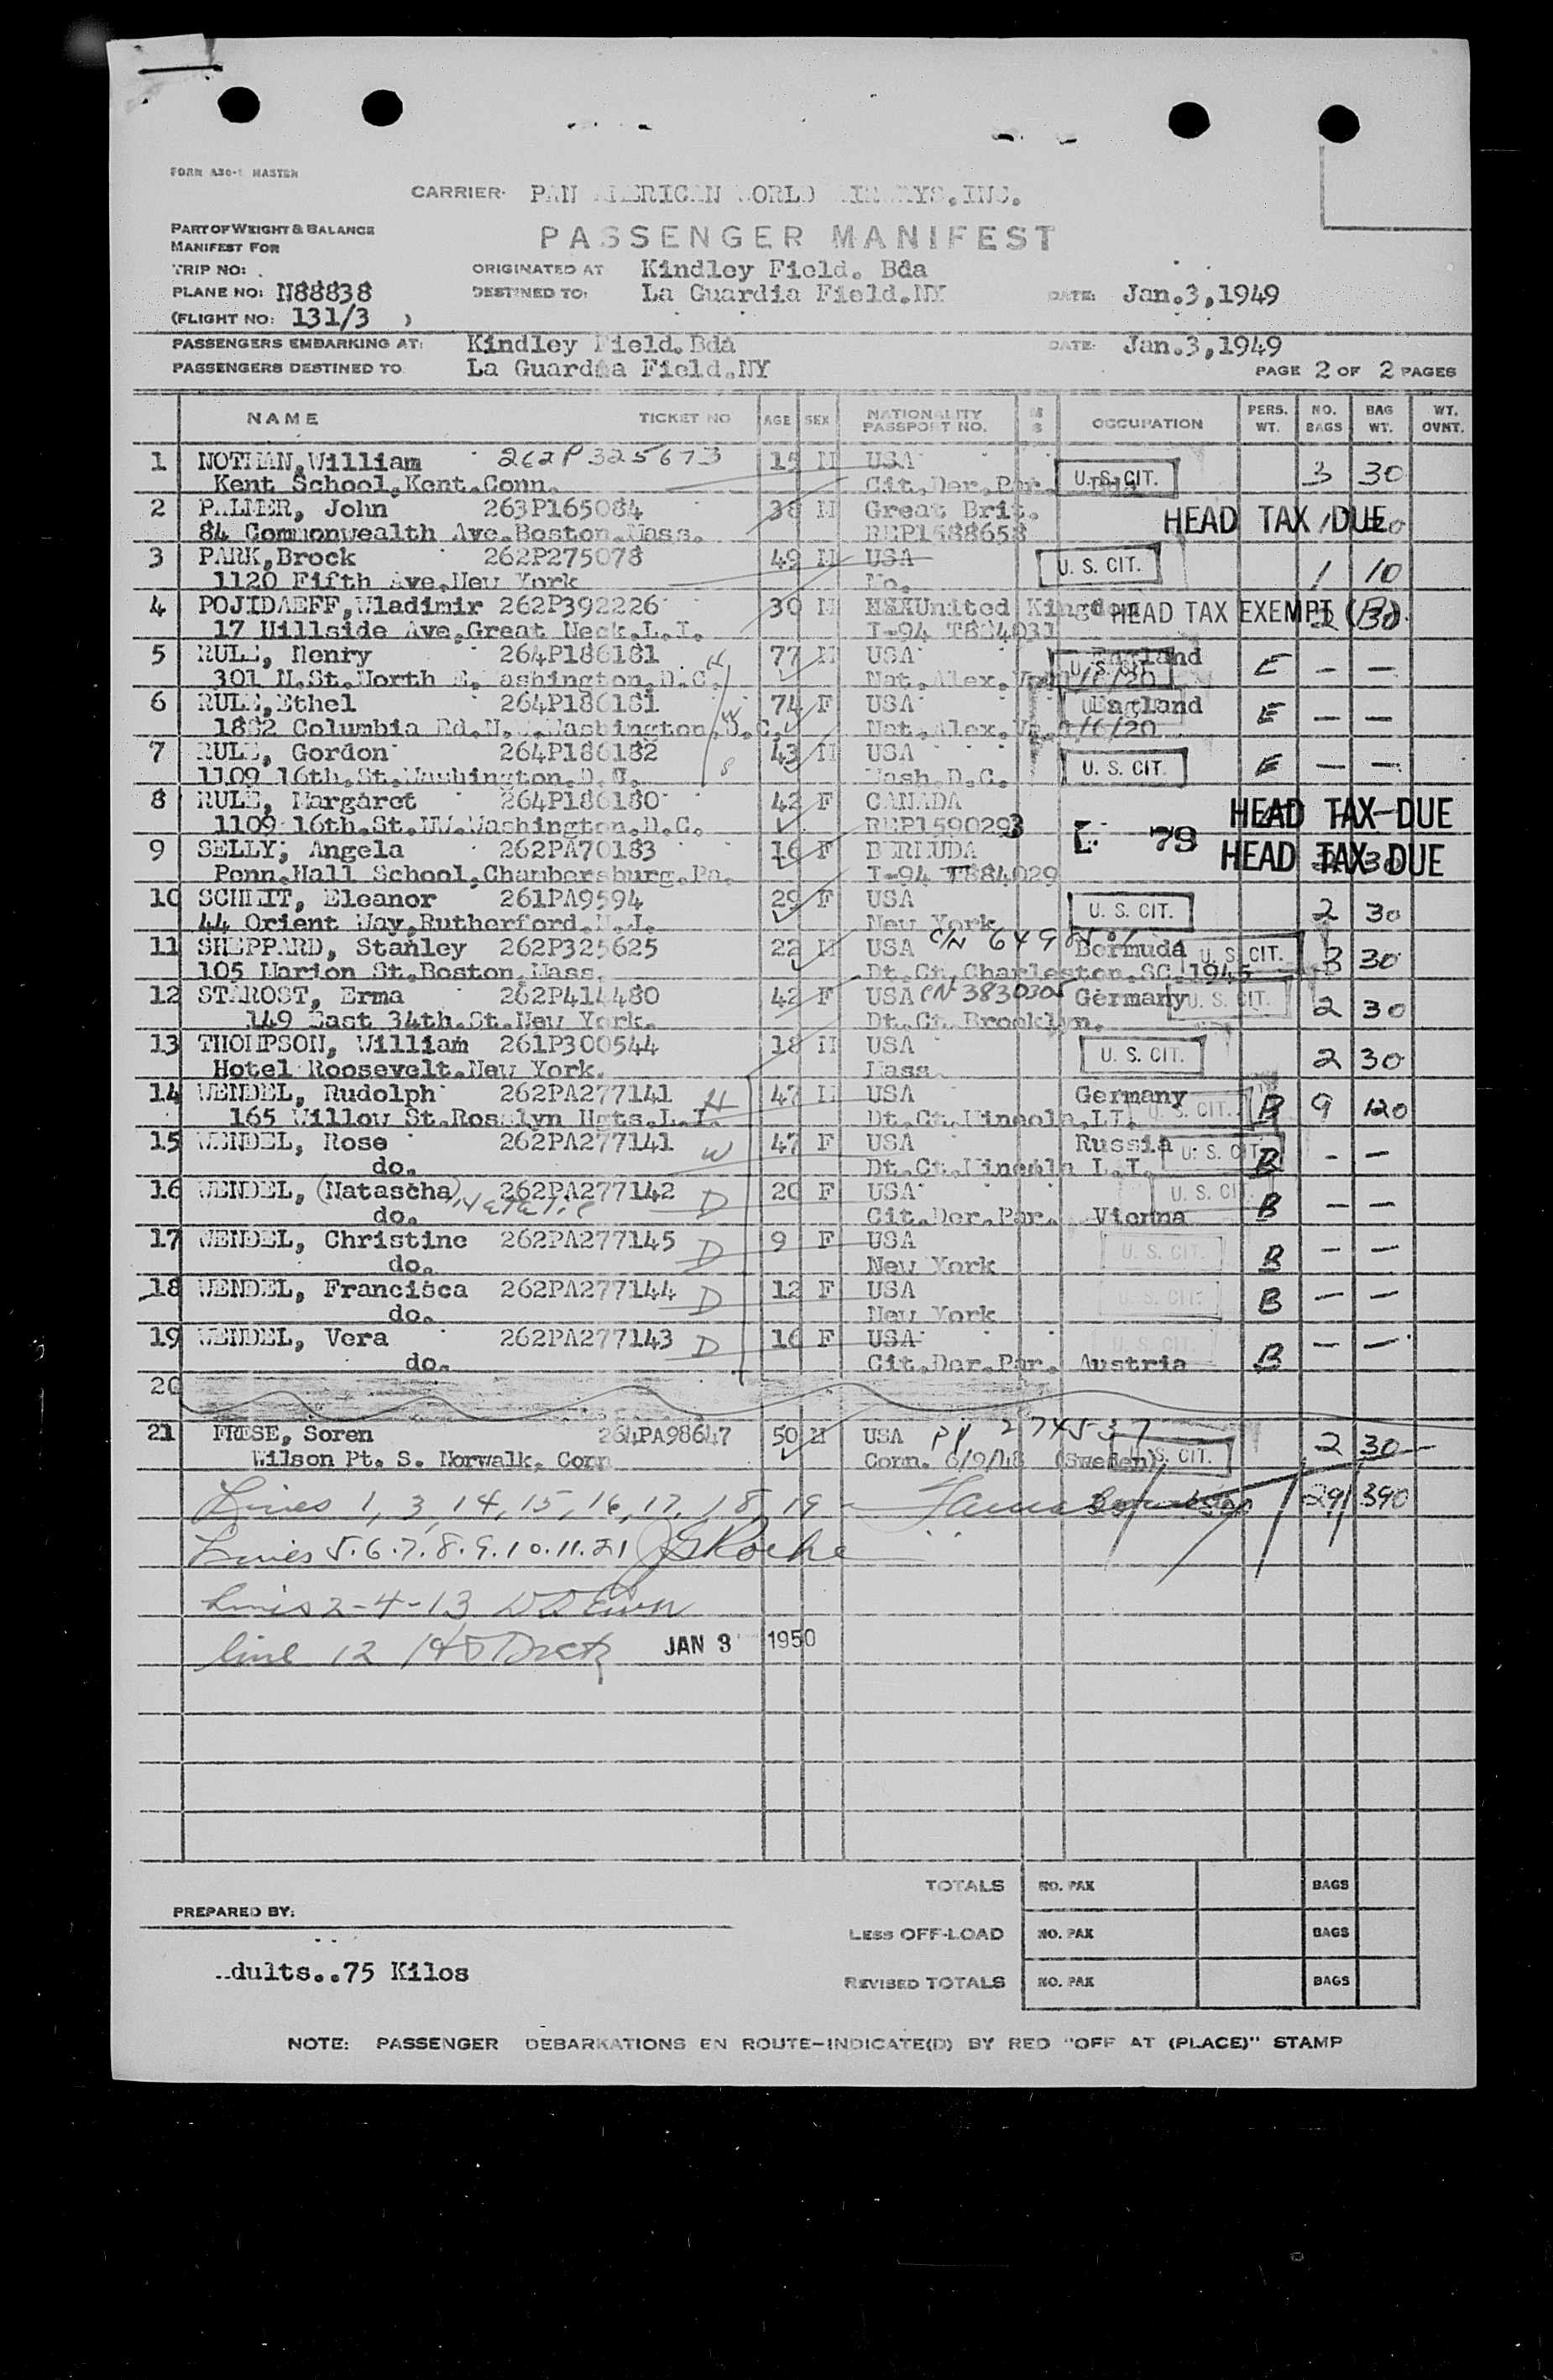 FORM A30-1 MASTER
CARRIER- PAN AMERICAN WORLD AIRWAYS, INC.
PART OF WEIGHT & BALANCE
MANIFEST FOR
PASSENGER MANIFEST
TRIP NO:
ORIGINATED AT Kindley Field. Bda
PLANE NO: N88838
DESTINED TO: La Guardia Field.NY DATE: Jan.3,1949
(FLIGHT NO: 131/3 )
PASSENGERS EMBARKING AT: Kindley Field.Bda DATE- Jan.3,1949
PASSENGERS DESTINED TO La Guardia Field.NY PAGE 2 OF 2 PAGES
NAME TICKET NO AGE SEX NATIONALITY PASSPORT NO. M S OCCUPATION PERS. WT. NO. BAGS BAG WT. WT. OVNT.
1 NOTMAN,William 262P325673 15 M USA U. S. CIT. 3 30
Kent School,Kent.Conn. Cit.Der.Par.
2 PALMER, John 263P165084 38 M Great Brit. HEAD TAX DUE
84 Commonwealth Ave.Boston.Mass. REP1588658
3 PARK,Brock 262P275078 49 M USA U. S. CIT. 1 10
1120 Fifth Ave,New York No.
4 POJIDAEFF,Wladimir 262P392226 30 M United Kingdom HEAD TAX EXEMPT
17 Hillside Ave,Great Neck.L.I. I-94 T884031
5 RULE, Henry 264P186181 H 77 M USA England U. S. CIT E — —
301 N.St.North E. Washington.D.C. Nat.Alex.Va
6 RULE,Ethel 264P186181 W 74 F USA England E — —
1882 Columbia Rd.N.W.Washington.D.C. Nat.Alex.Va. /6/20
7 RULE, Gordon 264P186182 S 43 M USA U. S. CIT. E — —
1109 16th.St.Washington.D.C. Wash.D.C.
8 RULE, Margaret 264P186180 42 F CANADA HEAD TAX-DUE
1109 16th.St.NW.Washington.D.C. REP1590293 79
9 SELLY, Angela 262PA70183 16 F BERMUDA HEAD TAX DUE
Penn.Hall School,Chambersburg.Pa. I-94 T884029
10 SCHMIT, Eleanor 261PA9594 29 F USA U. S. CIT. 2 30
44 Orient Way,Rutherford.N.J. New York
11 SHEPPARD, Stanley 262P325625 22 M USA Bermuda U. S. CIT. 3 30
105 Marion St.Boston,Mass. Dt.Ct.Charleston.SC.1945
12 STAROST, Erma 262P414480 42 F USA CN 3830305 Germany U. S. CIT. 2 30
149 East 34th.St.New York. Dt.Ct.Brooklyn.
13 THOMPSON, William 261P300544 18 M USA U. S. CIT. 2 30
Hotel Roosevelt.New York. Mass.
14 WENDEL, Rudolph 262PA277141 H 47 M USA Germany U. S. CIT. B 9 120
165 Willow St.Roslyn Hgts.L.I. Dt.Ct.Mineola.LI.
15 WENDEL, Rose 262PA277141 W 47 F USA Russia U. S. CIT B - —
do. Dt.Ct.Mineola L.I.
16 WENDEL, (Natascha) 262PA277142 D 20 F USA U. S. CI B — —
do. Cit.Der.Par. Vienna
17 WENDEL, Christine 262PA277145 D 9 F USA U. S. CIT. B — —
do. New York
18 WENDEL, Francisca 262PA277144 D 12 F USA U. S. CIT. B — —
do. New York
19 WENDEL, Vera 262PA277143 D 16 F USA U. S. CIT. B — —
do. Cit.Der.Par. Austria
20
21 FRESE, Soren 264PA98647 50 M USA PP 274537 2 30
Wilson Pt. S. Norwalk. Conn Conn. 6/9/48 (Sweden) U. S. CIT.
Lines 1, 3, 14, 15, 16, 17, 18, 19 - 29 390
Lines 5.6.7.8.9.10.11.21 JGRoche
Lines 2-4-13
line 12 JAN 3 1950
TOTALS NO. PAX BAGS
PREPARED BY:
LESS OFF-LOAD NO. PAX BAGS
dults..75 Kilos
REVISED TOTALS NO. PAX BAGS
NOTE: PASSENGER DEBARKATIONS EN ROUTE-INDICATE(D) BY RED "OFF AT (PLACE)" STAMP